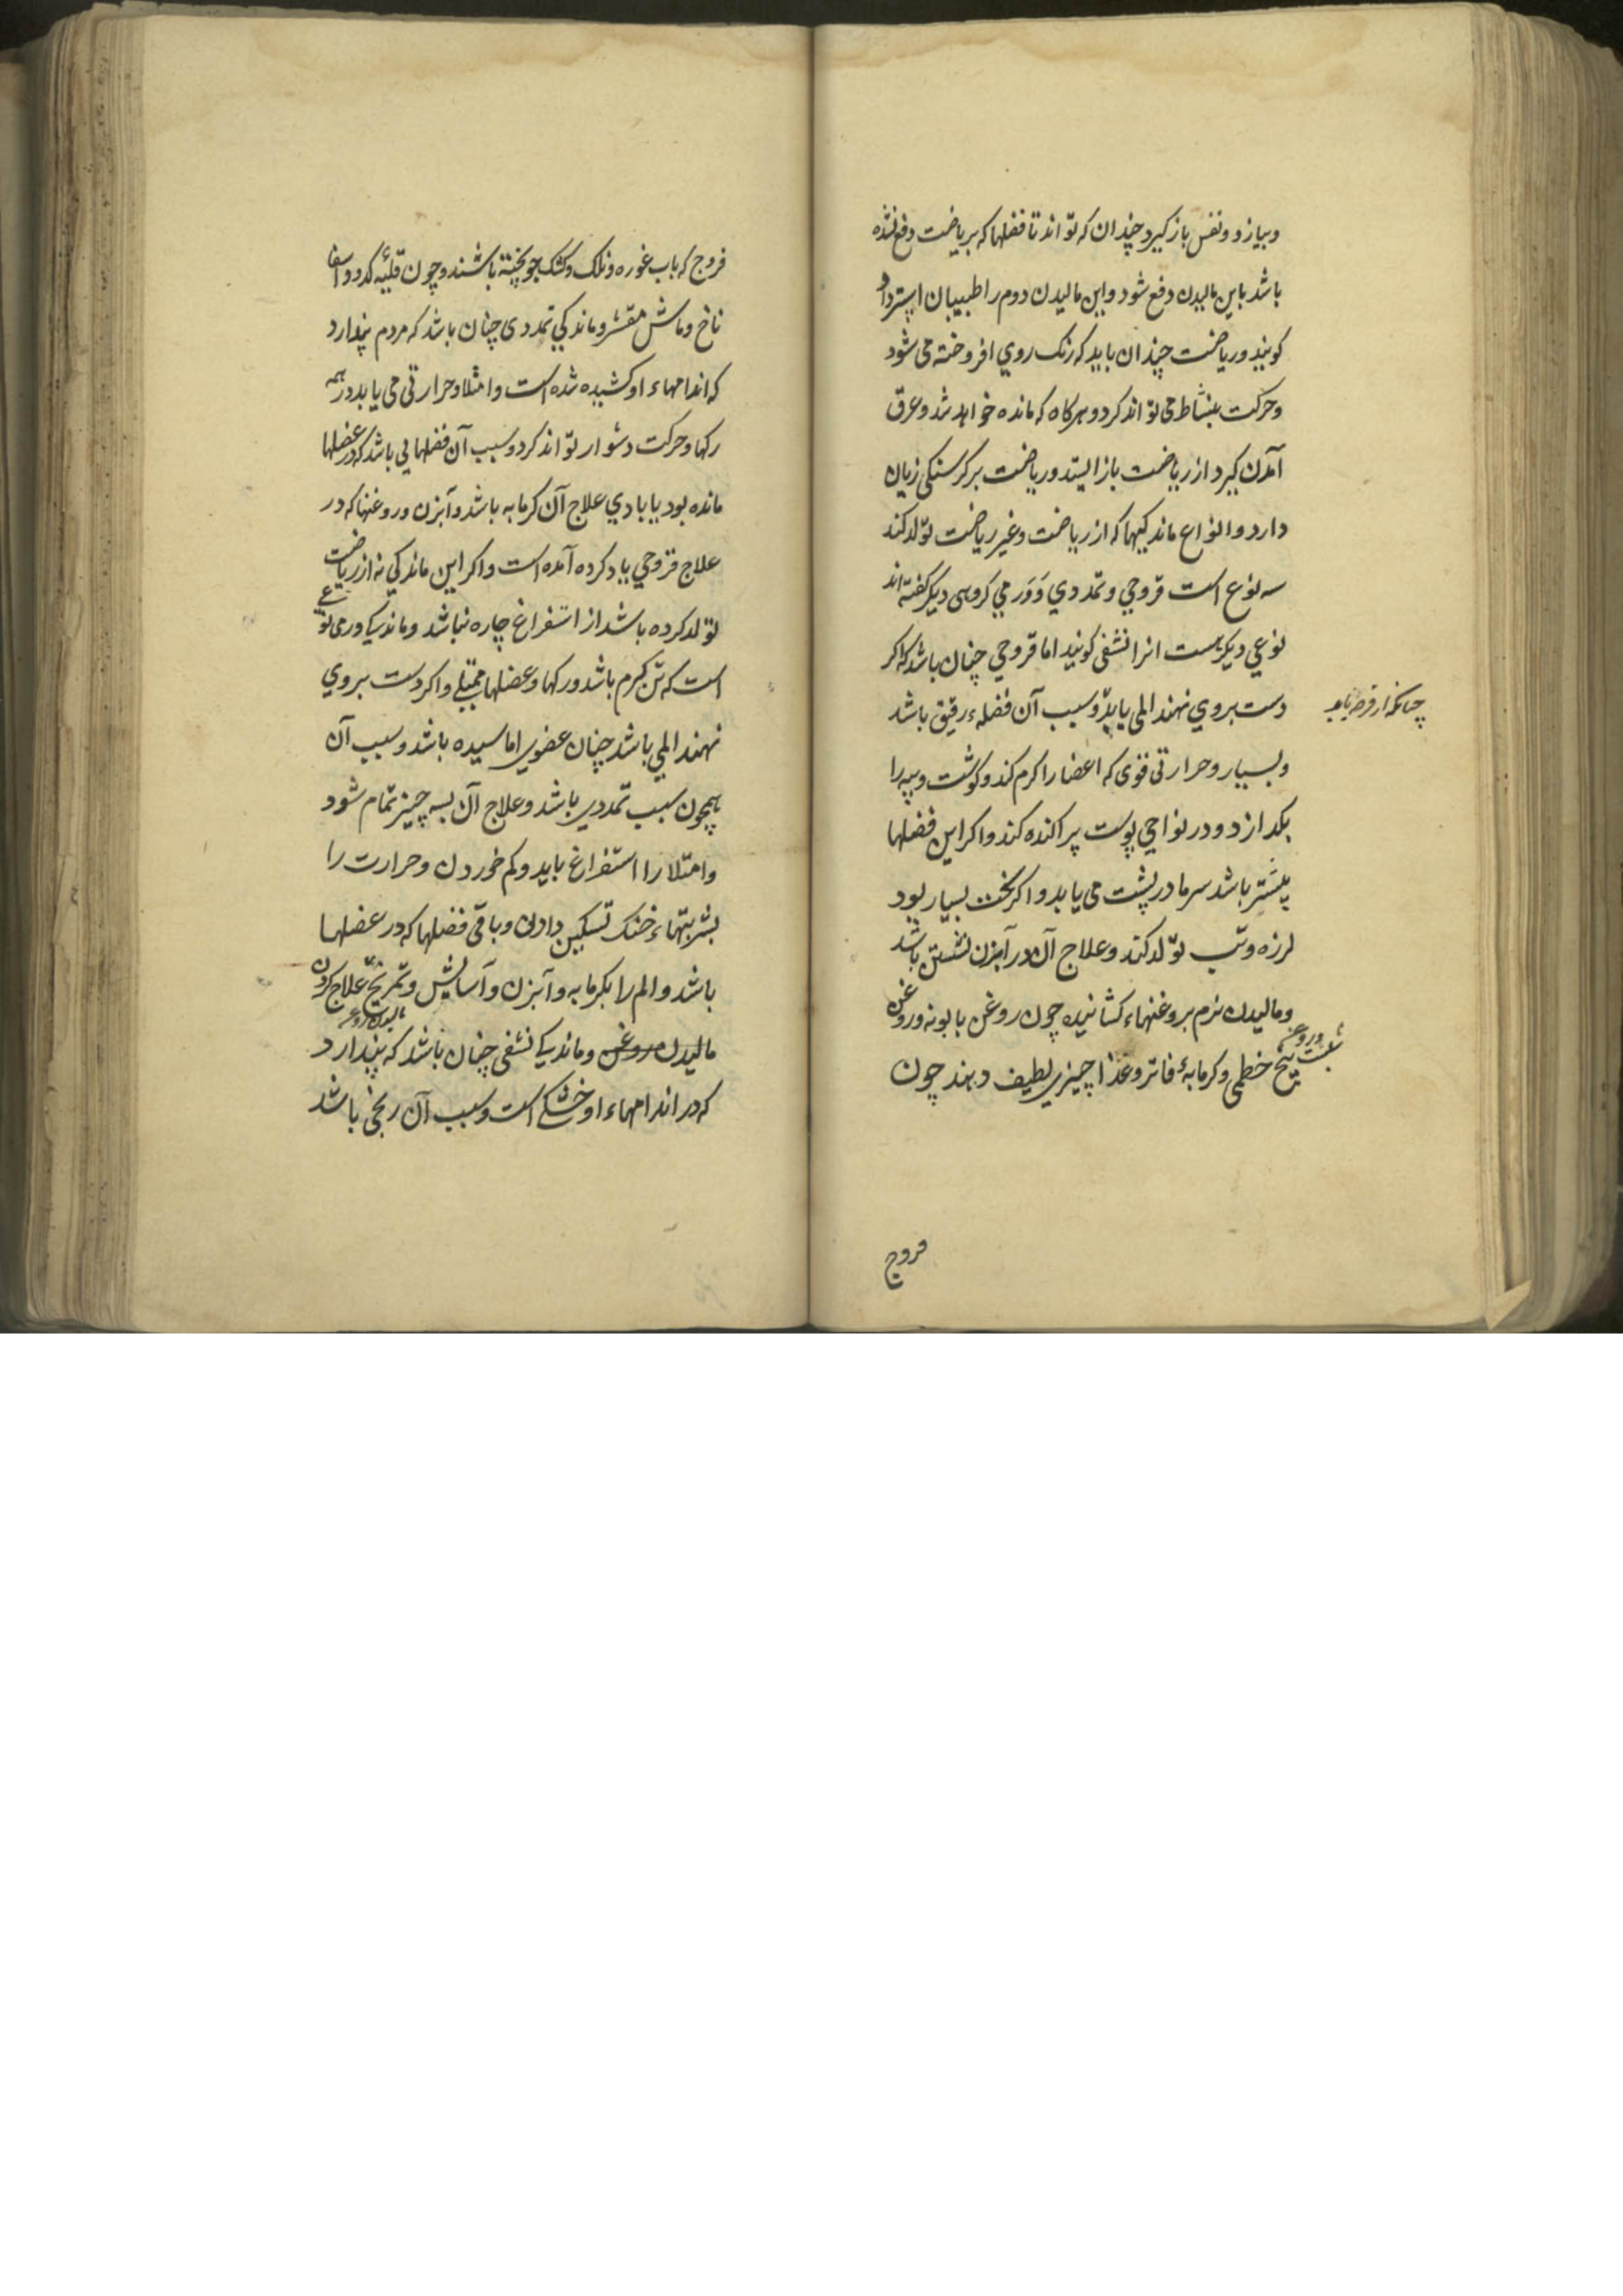 وبیازد ونفس باز کیرد چندان که تواند تا فضلها که بریاضت دفع نشده
باشد باین مالیدن دفع شود واین مالیدن دوم را طبیبان استرداد
کویند وریاضت چندان باید که رنک روی افروخته می شود
وحرکت بنشاط می تواند کرد وهرکاه که مانده خواهد شد وعرق
آمدن کیرد از ریاضت باز ایستد وریاضت بر کرسنکی زیان
دارد وانواع ماندکیها که از ریاضت وغیر ریاضت تولد کند
سه نوع است قروحی وتمددی وورمی کروهی دیکر کفته اند
نوعی دیکرست انرا نشفی کویند اما قروحی چنان باشد که اکر
دست بروی نهند المی یابد وسبب آن فضلهء رقیق باشد
چنانکه از قرحه یابد
وبسیار وحرارتی قوی که اعضا را کرم کند وکوشت وپیه را
بکدازد ودر نواحی پوست پراکنده کند واکر این فضلها
بیشتر باشد سرما در پشت می یابد واکر سخت بسیار بود
لرزه وتب تولد کند وعلاج آن در آبزن نشستن باشد
ومالیدن نرم بروغنهاء کشاینده چون روغن بابونه وروغن
شبت وروغن
بیخ خطمی وکرمابهٔ فاتر وغذا چیزی لطیف دهند چون
فروج
فروج که بآب غوره ونلک وکشک جو پخته باشند وچون قلیهٔ کدو واسفا
ناخ وماش مقشر وماندکی تمددی چنان باشد که مردم پندارد
که اندامهاء او کشیده شده است وامتلا وحرارتی می یابد در همه
رکها وحرکت دشوار تواند کرد وسبب آن فضلهایی باشد که در عضلها
مانده بود یا بادی علاج آن کرمابه باشد وآبزن وروغنها که در
علاج قروحی یاد کرده آمده است واکر این ماندکی نه از ریاضت
تولد کرده باشد از استفراغ چاره نباشد وماندکی ورمی نوعی
است که تن کرم باشد ورکها وعضلها ممتلی واکر دست بروی
نهند المی باشد چنان عضوی اماسیده باشد وسبب آن
همچون سبب تمددی باشد وعلاج آن بسه چیز تمام شود
وامتلا را استفراغ باید وکم خوردن وحرارت را
بشربتهاء خنک تسکین دادن وباقی فضلها که در عضلها
باشد والم را بکرمابه وآبزن وآسایش وتمریخ علاج کردن
مالیدن روغن
مالیدن روغن وماندکی نشفی چنان باشد که پندارد
که در اندامهاء او خشکی است وسبب آن رنجی باشد